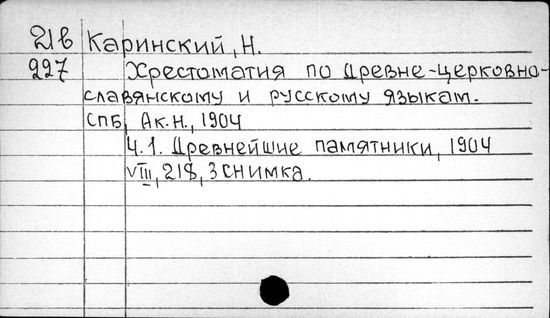 21в Каринский, Н.
227 Хрестоматия по древне-церковно-
славянскому и русскому языкам.
СПБ, Ак.Н., 1904
Ч.1. Древнейшие памятники, 1904
VIII, 218, 3 снимка.